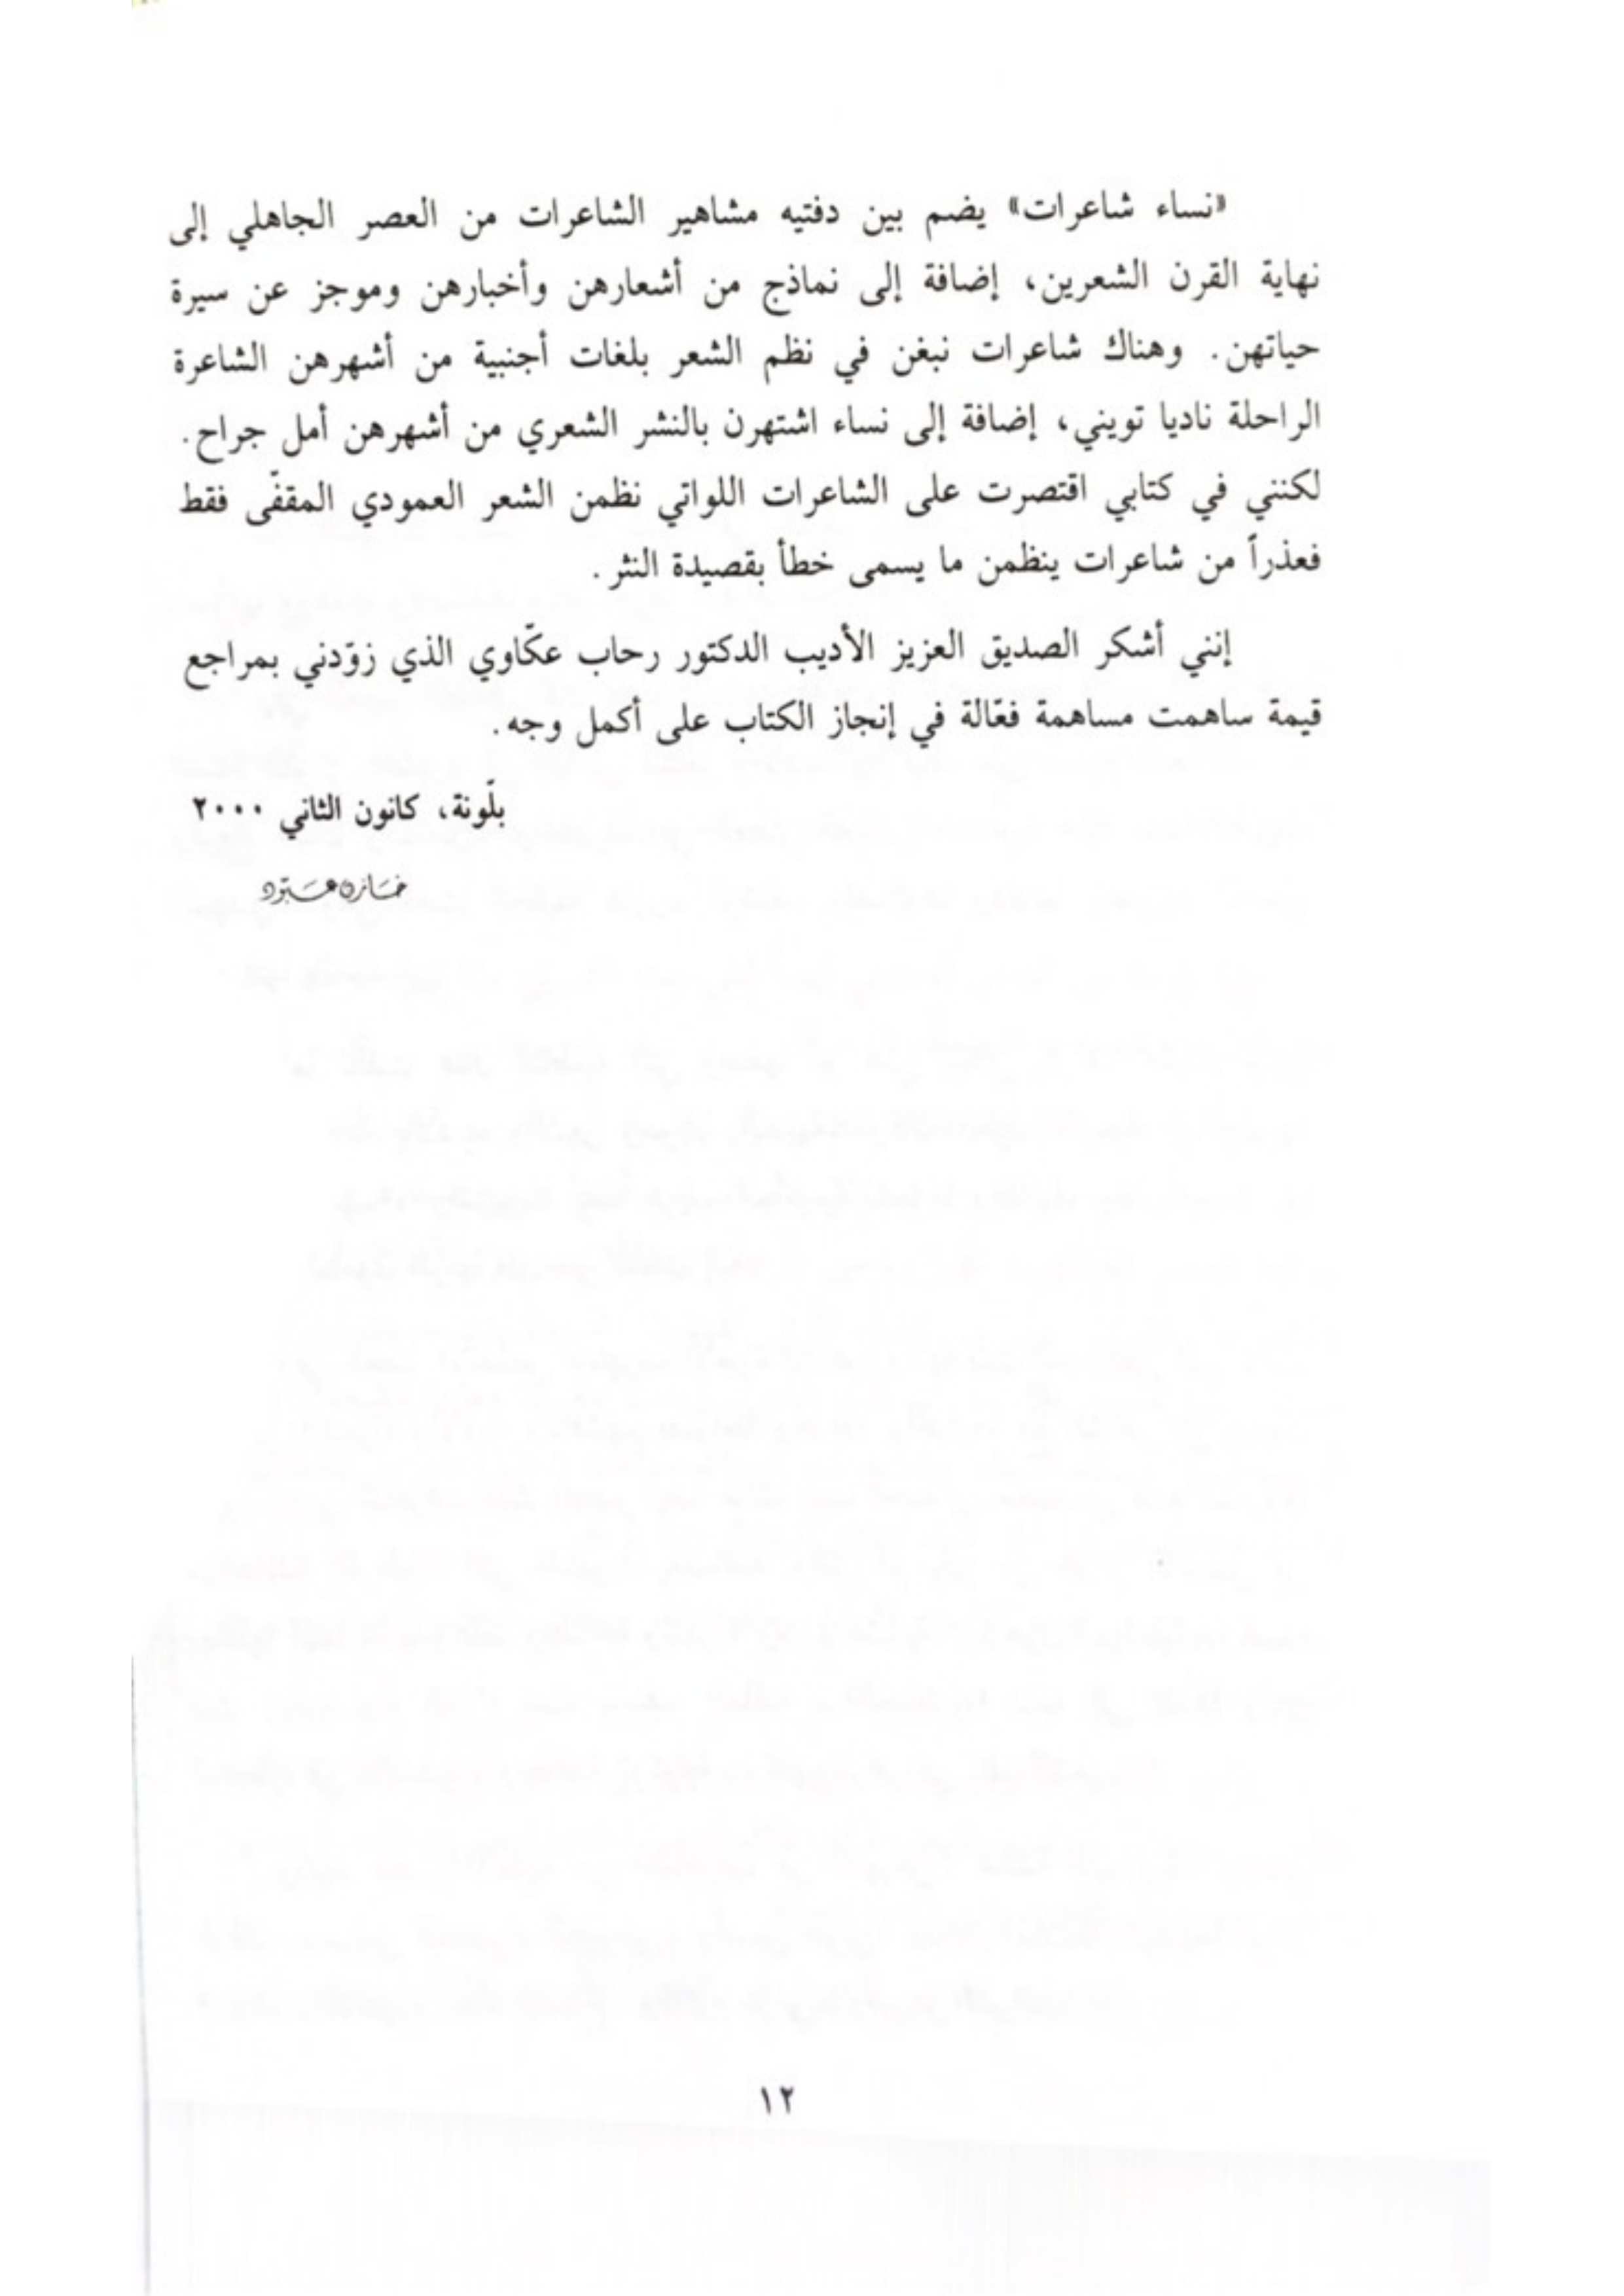 «نساء شاعرات» يضم بين دفتيه مشاهير الشاعرات من العصر الجاهلي إلى
نهاية القرن الشعرين، إضافة إلى نماذج من أشعارهن وأخبارهن وموجز عن سيرة
حياتهن. وهناك شاعرات نبغن في نظم الشعر بلغات أجنبية من أشهرهن الشاعرة
الراحلة ناديا تويني، إضافة إلى نساء اشتهرن بالنشر الشعري من أشهرهن أمل جراح.
لكنني في كتابي اقتصرت على الشاعرات اللواتي نظمن الشعر العمودي المقفّى فقط
فعذراً من شاعرات ينظمن ما يسمى خطأ بقصيدة النثر.
إنني أشكر الصديق العزيز الأديب الدكتور رحاب عكّاوي الذي زوّدني بمراجع
قيمة ساهمت مساهمة فعّالة في إنجاز الكتاب على أكمل وجه.
بلّونة، كانون الثاني ٢٠٠٠
خَازن عَبّود
١٢